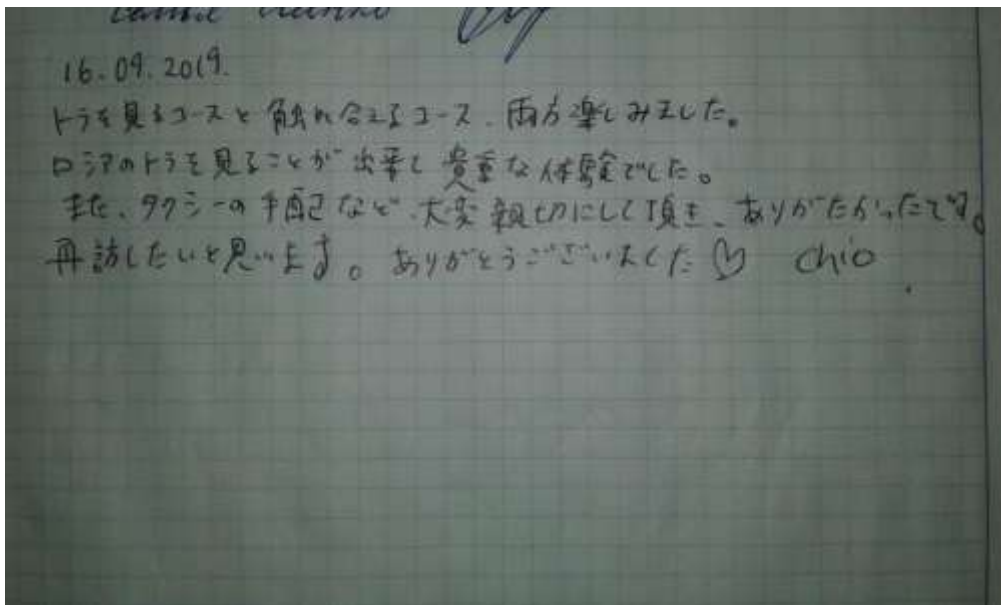 16.09.2019.
トラを見るコースと触れ合えるコース、両方楽しみました。
ロシアのトラを見ることが出来て貴重な体験でした。
また、タクシーの手配など、大変親切にして頂き、ありがたかったです。
再訪したいと思います。ありがとうございました♡ chio